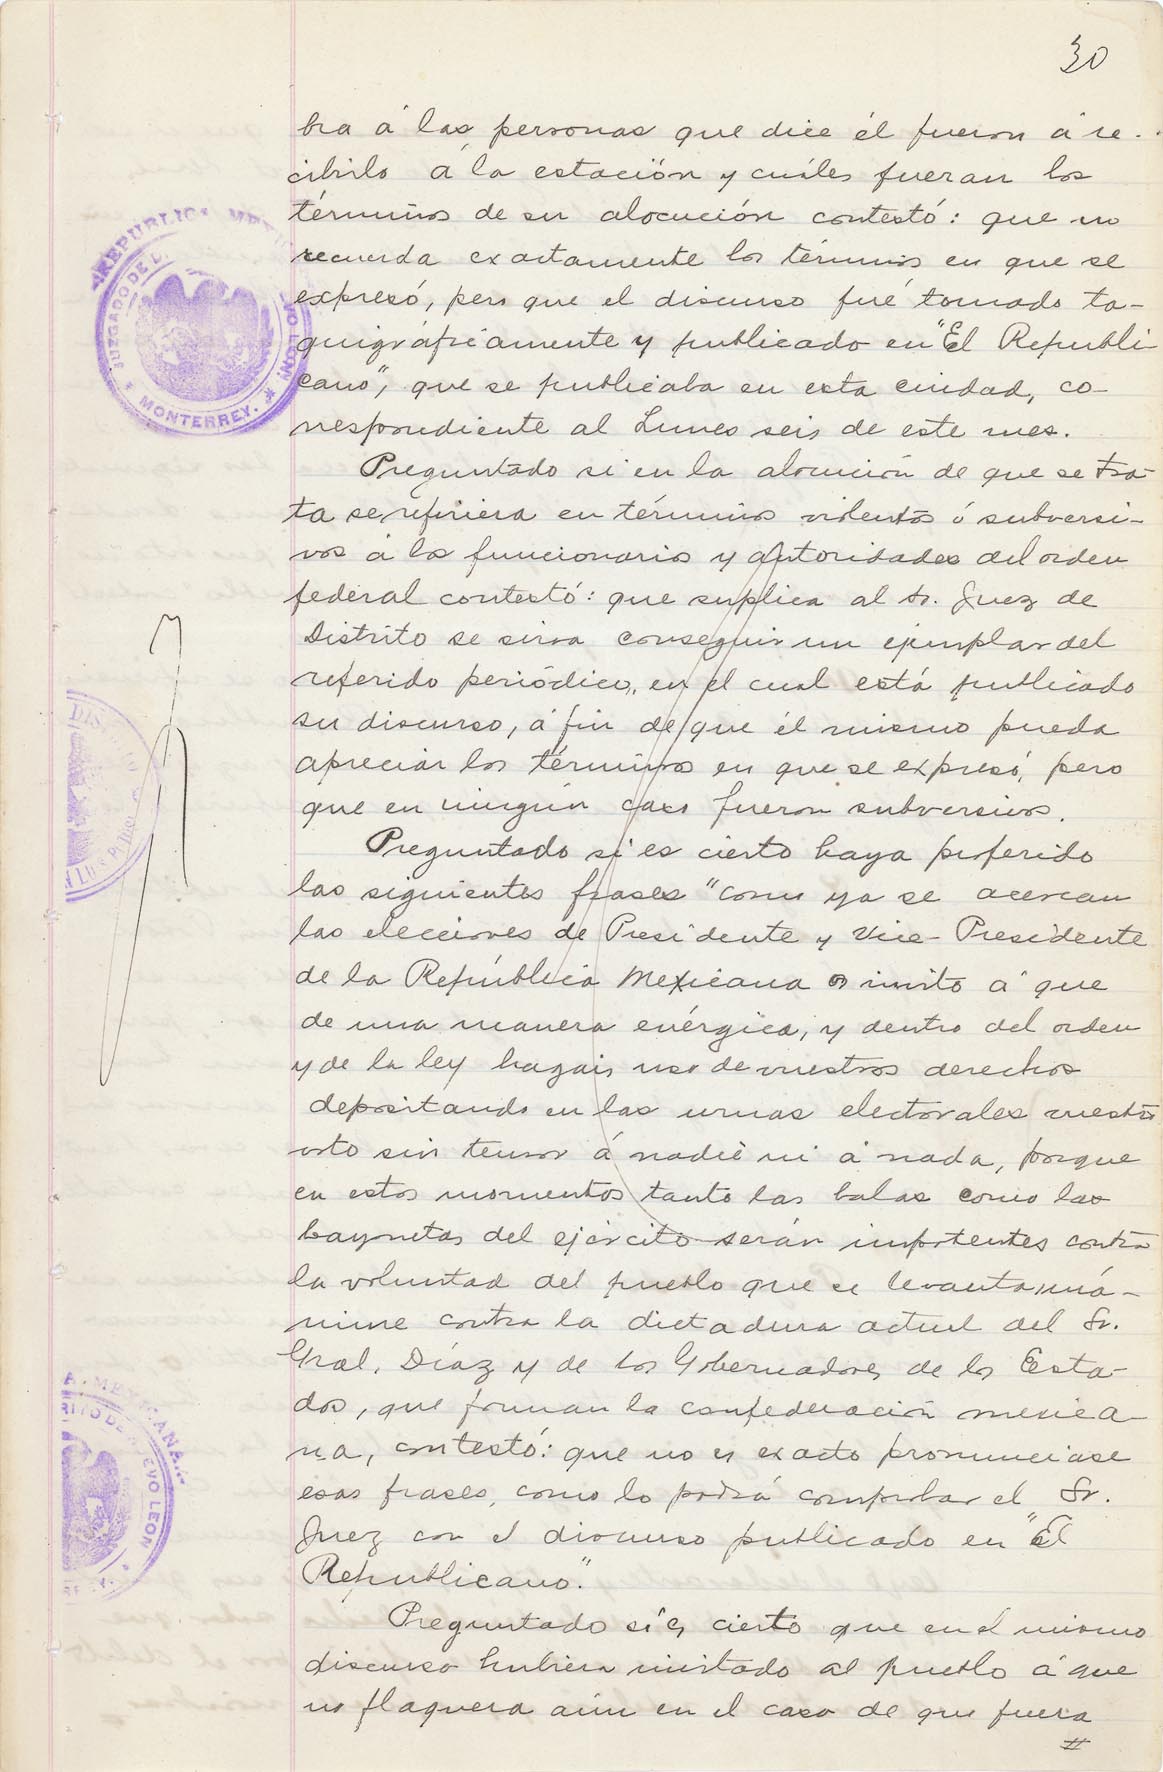 30
bra á las personas que dice él fueron á re-
cibirlo á la estación y cuáles fueran los
términos de su alocución contestó: que no
recuerda exactamente los términos en que se
expresó, pero que el discurso fué tomado ta-
quigráficamente y publicado en "El Republi-
cano", que se publicaba en esta ciudad, co-
rrespondiente al Lunes seis de este mes.
Preguntado si en la alocución de que se tra-
ta se refiriera en términos violentos ó subversi-
vos á los funcionarios y autoridades del orden
federal contestó: que suplica al Sr. Juez de
Distrito se sirva conseguir un ejemplar del
referido periódico, en el cual está publicado
su discurso, á fin de que él mismo pueda
apreciar los términos en que se expresó, pero
que en ningún caso fueron subversivos.
Preguntado si es cierto haya proferido
las siguientes frases "como ya se acercan
las elecciones de Presidente y Vice-Presidente
de la República Mexicana os invito á que
de una manera enérgica, y dentro del orden
y de la ley hagais uso de vuestros derechos
depositando en las urnas electorales vuestro
voto sin temor á nadie ni á nada, porque
en estos momentos tanto las balas como las
bayonetas del ejército serán impotentes contra
la voluntad del pueblo que se levanta uná-
nime contra la dictadura actual del Sr.
Gral. Díaz y de los Gobernadores de los Esta-
dos, que forman la confederación mexica-
na, contestó: que no es exacto pronunciase
esas frases, como lo podrá comprobar el Sr.
Juez con el discurso publicado en "El
Republicano."
Preguntado si es cierto que en el mismo
discurso hubiera invitado al pueblo á que
no flaquera aún en el caso de que fuera
REPUBLICA MEX
JUZGADO DEL
MONTERREY.
DISTRITO
A. MEXICANA.
RITO DE NUEVO LEON